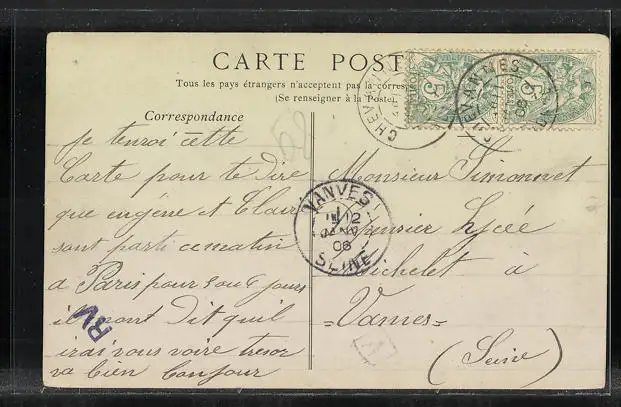 CARTE POST
Tous les pays étrangers n'acceptent pas la corres
(Se renseigner à la Poste)
Correspondance
je tenvoi cette
Carte pour te dire
que eugène et Clair
sont parti ce matin
a Paris pour 5 ou 6 jours
il mont dit quil
irai vous voire tresor
va bien bonjour
RV
Monsieur Simonnet
Lycée
Michelet à
=Vanves=
(Seine)
VANVES
12
06
SEINE
5
5